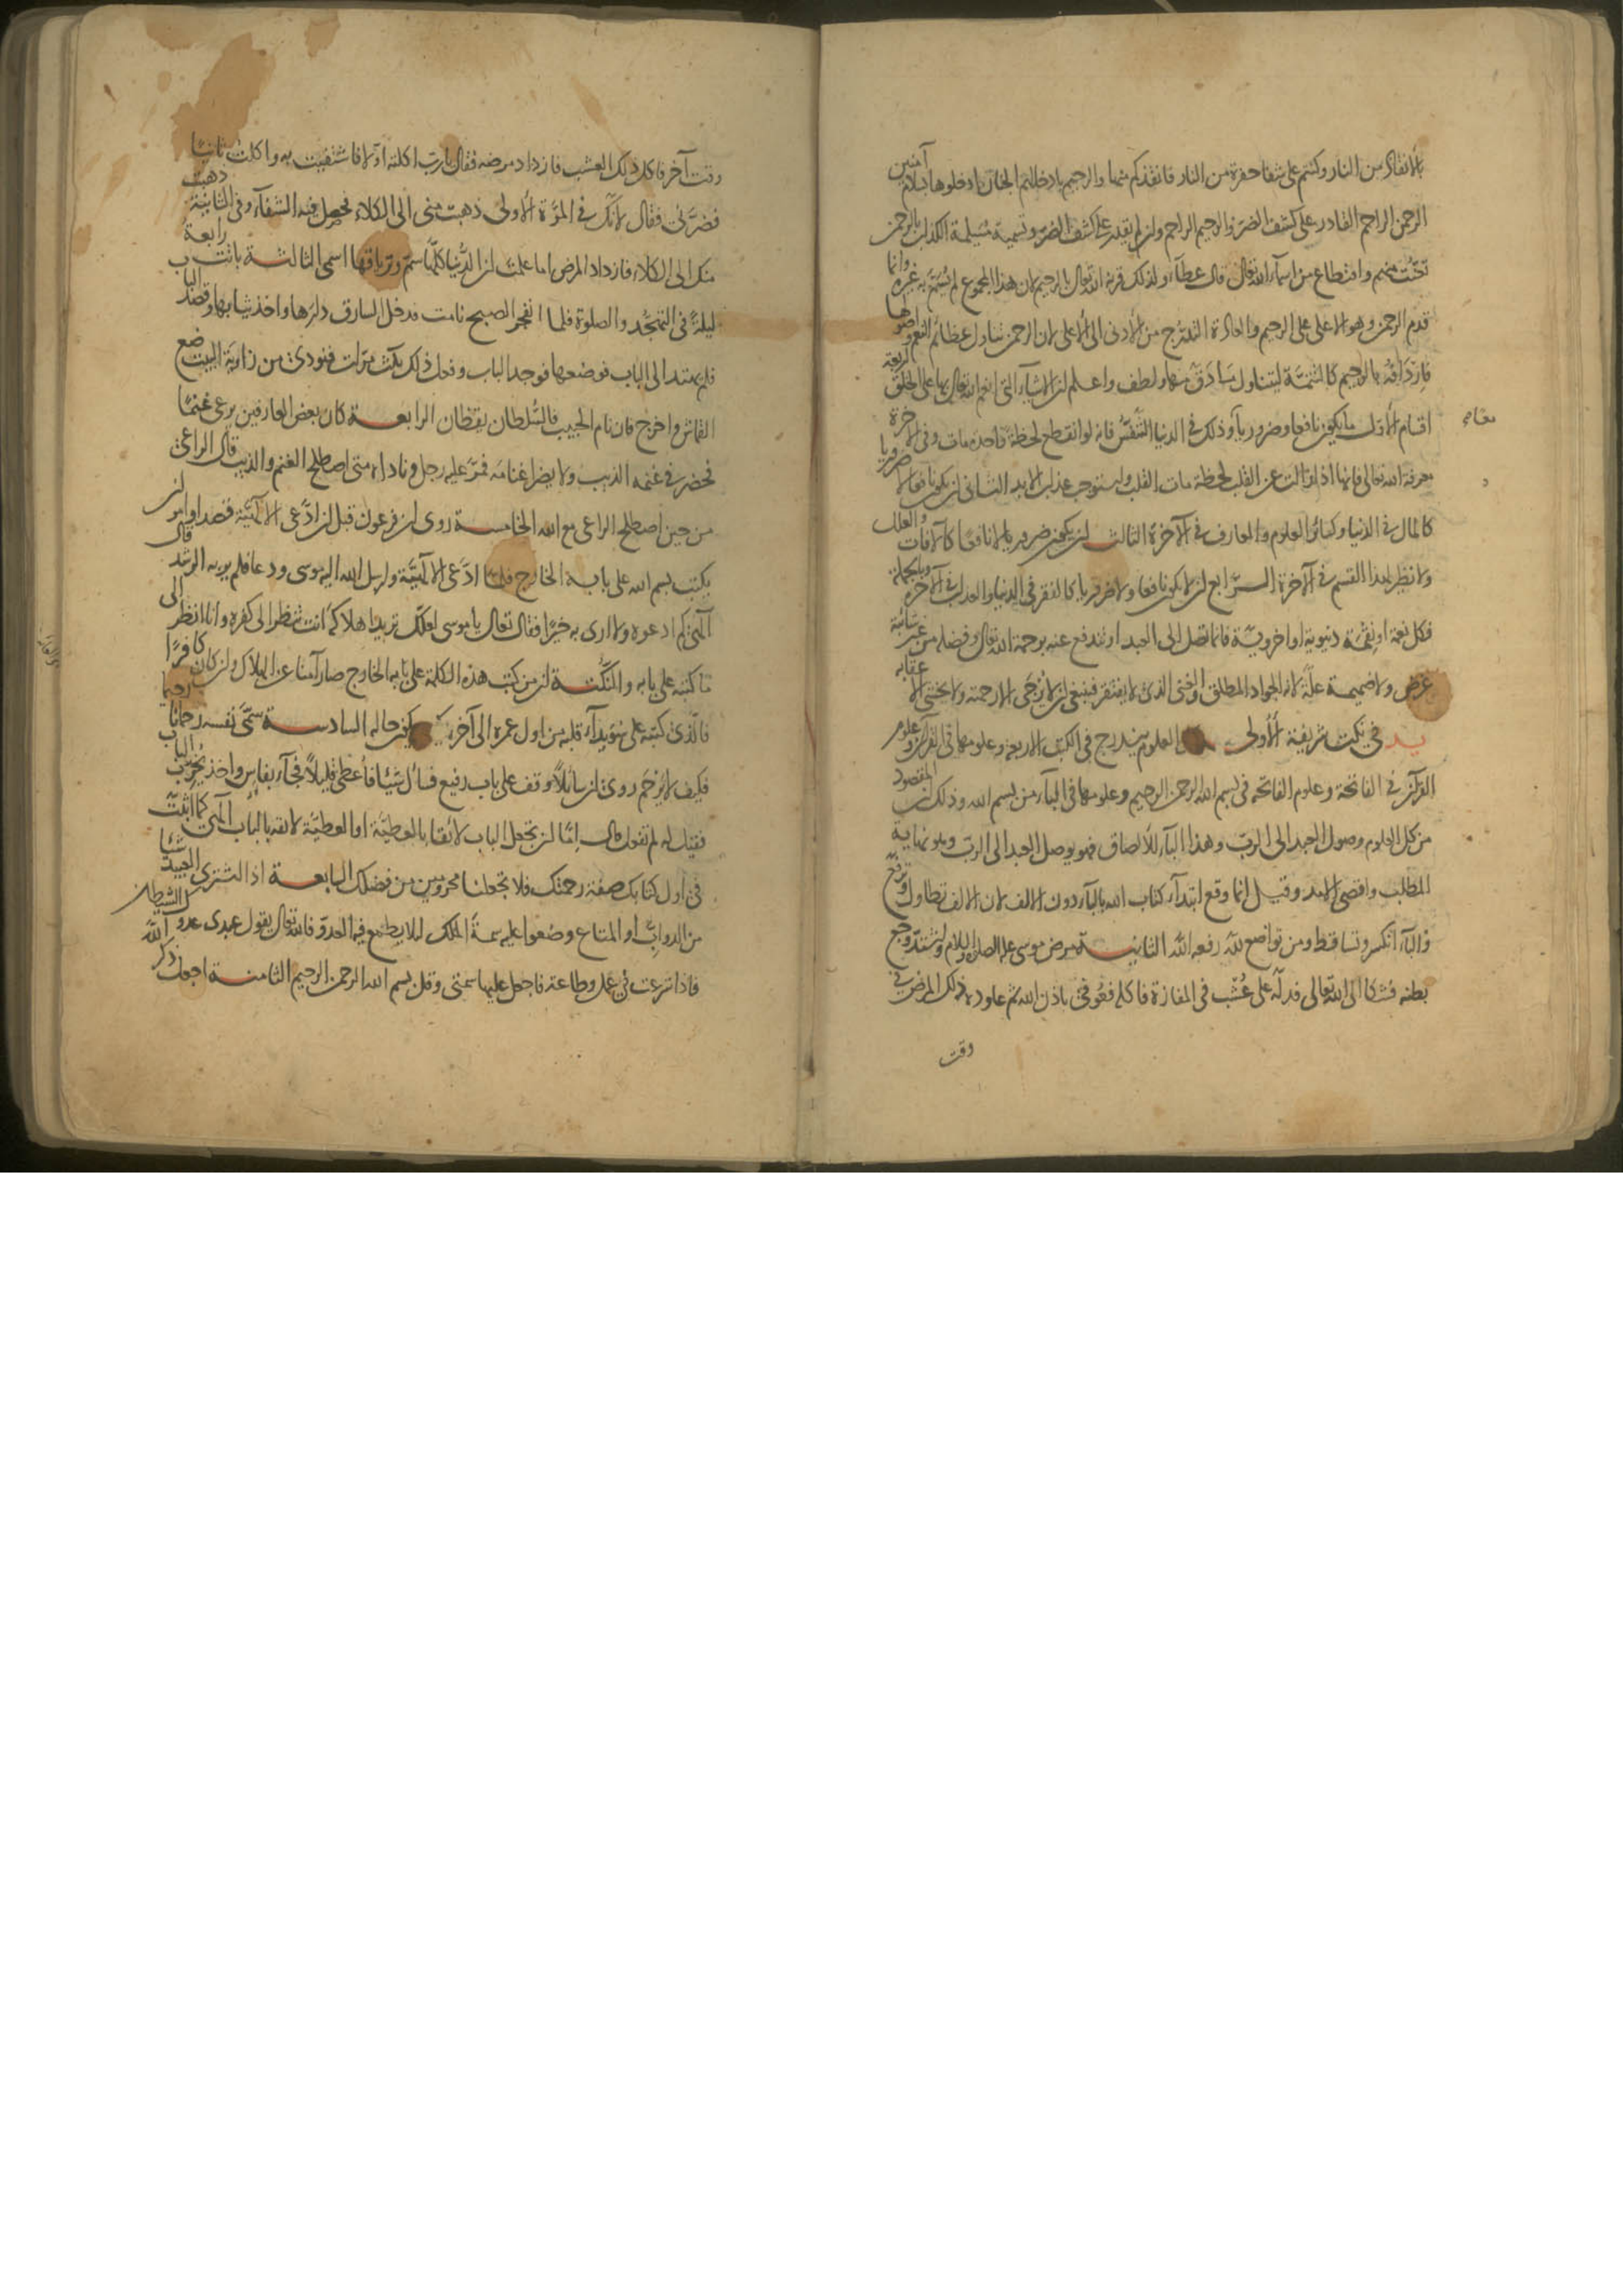 بالانقاذ من النار وكنتم على شفا حفرة من النار فانقذكم منها والرحيم بادخالهم الجنان ادخلوها بسلام آمنين
الرحمن الراحم القادر على كشف الضر والرحيم الراحم ولن لم يقدر على كشف الضر وتسمية مسيلمة الكذاب بالرحمن
تعنت منهم واقتطاع من اسماء الله تعالى قال عطاء ولذلك قرنه الله تعالى بالرحيم لان هذا المجموع لم يسم به غيره وانما
قدم الرحمن وهو الاعلى على الرحيم والعادة التدرج من الادنى الى الاعلى لان الرحمن تناول عظائم النعم واصولها
فاردافه بالرحيم كالتتمة ليتناول ما دق منها ولطف واعلم لن الاشياء التى انعم الله تعالى بها على الخلق اربعة
اقسام الاول ما يكون نافعا وضروريا وذلك فى الدنيا التنفس فانه لو انقطع لحظة واحدة مات وفى الآخرة
معرفة الله تعالى فانها اذا زالت عن القلب لحظة مات القلب واستوجب عذاب الابد الثانى لن يكون نافعا لا ضروريا
كالمال فى الدنيا وكسائر العلوم والمعارف فى الآخرة الثالث لن يكون ضروريا لا نافعا كالآفات والعلل
ولا نظير لهذا القسم فى الآخرة الرابع لن لا يكون نافعا ولا ضروريا كالفقر فى الدنيا والعذاب فى الآخرة وبالجملة
فكل نعمة او نقمة دنيوية او اخروية فانما تصل الى العبد او تندفع عنه برحمة الله تعالى وفضله من غير شائبة
غرض ولا ضميمة علة لانه الجواد المطلق والغنى الذى لا يفتقر فينبغى لن لا يرجى الا رحمته ولا يخشى الا عقابه
يد فى نكت شريفة الاولى العلوم يندرج فى الكتب الاربعة وعلومها فى القرآن وعلوم
القرآن فى الفاتحة وعلوم الفاتحة فى بسم الله الرحمن الرحيم وعلومها فى الباء من بسم الله وذلك لن المقصود
من كل العلوم وصول العبد الى الرب وهذا الباء للالصاق فهو يوصل العبد الى الرب وهو نهاية
المطلب واقصى الامد وقيل انما وقع ابتداء كتاب الله بالباء دون الالف لان الالف تطاول وترفع
والباء انكسر وتساقط ومن تواضع لله رفعه الله الثانية مرض موسى عليه الصلاة والسلام واشتد وجع
بطنه فشكا الى الله تعالى فدله على عشب فى المفازة فاكله فعوفى باذن الله ثم عاوده ذلك المرض فى
وقت
وقت آخر فاكل ذلك العشب فازداد مرضه فقال يا رب اكلته اولا فاشتفيت به واكلت ثانيا
فضرنى فقال لانك فى المرة الاولى ذهبت منى الى الكلاء فحصل فيه الشفاء وفى الثانية ذهبت
منك الى الكلاء فازداد المرض اما علمت لن الدنيا كلها سم وترياقها اسمى الثالثة باتت رابعة
ليلة فى التهجد والصلوة فلما انفجر الصبح نامت فدخل السارق دارها واخذ ثيابها وقصد الباب
فلم يهتد الى الباب فوضعها فوجد الباب وفعل ذلك ثلث مرات فنودى من زاوية البيت ضع
القماش واخرج فان نام الحبيب فالسلطان يقظان الرابعة كان بعض العارفين يرعى غنما
فحضر فى غنمه الذيب ولا يضر اغنامه فمر عليه رجل وناداه متى اصطلح الغنم والذيب قال الراعى
من حين اصطلح الراعى مع الله الخامسة روى لن فرعون قبل لن ادعى الالهية قصد او امر لن
يكتب بسم الله على بابه الخارج فلما ادعى الالهية وارسل الله اليه موسى ودعا فلم ير به الرشد قال
الهى كم ادعوه ولا ارى به خيرا فقال تعالى يا موسى لعلك تريد اهلاكه انت تنظر الى كفره وانا انظر الى
ما كتبه على بابه والنكتة لن من كتب هذه الكلمة على بابه الخارج صار آمنا عن الهلاك ولن كان كافرا
فالذى كتبه على سويداء قلبه من اول عمره الى آخره كيف يكون حاله السادسة سمى نفسه رحمانا رحيما
فكيف لا يرحم روى لن سائلا وقف على باب رفيع فسأل شيئا فأعطى قليلا فجاء بفاس واخذ يخرب الباب
فقيل له لم تفعل قال اما لن تجعل الباب لائقا بالعطية او العطية لائقة بالباب الهى كما اثبت
فى اول كتابك صفة رحمتك فلا تجعلنا محرومين من فضلك السابعة اذا اشترى العبيد شيئا
من الدواب او المتاع وضعوا عليه سمة الملك لئلا يطمع فيه العدو فالله تعالى يقول عبدى عدوك الشيطان
فاذا شرعت فى عمل وطاعة فاجعل عليها سمتى وقل بسم الله الرحمن الرحيم الثامنة اجعل ذكر الله